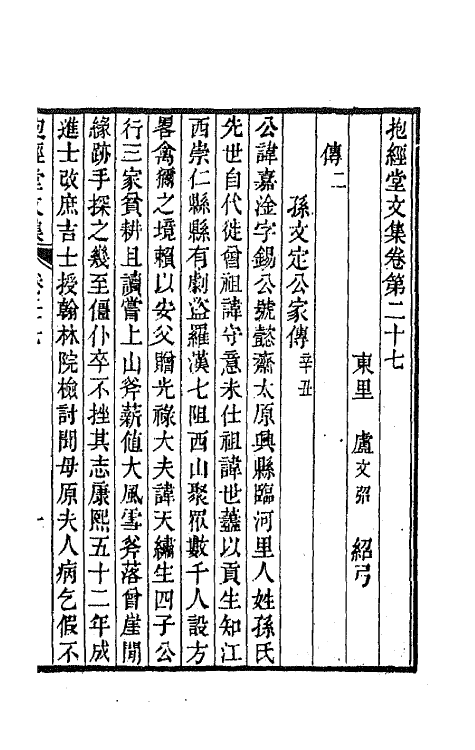 抱經堂文集卷第二十七
東里 盧文弨 紹弓
傳二
孫文定公家傳辛丑
公諱嘉淦字錫公號懿齋太原興縣臨河里人姓孫氏
先世自代徙曾祖諱守意未仕祖諱世蓋以貢生知江
西崇仁縣縣有劇盜羅漢七阻西山聚眾數千人設方
畧禽獮之境賴以安父贈光祿大夫諱天繡生四子公
行三家貧耕且讀嘗上山斧薪値大風雪斧落曾崖閒
緣跡手探之幾至僵仆卒不挫其志康熙五十二年成
進士改庶吉士授翰林院檢討聞母原夫人病乞假不
抱經堂文集 卷二十七 一